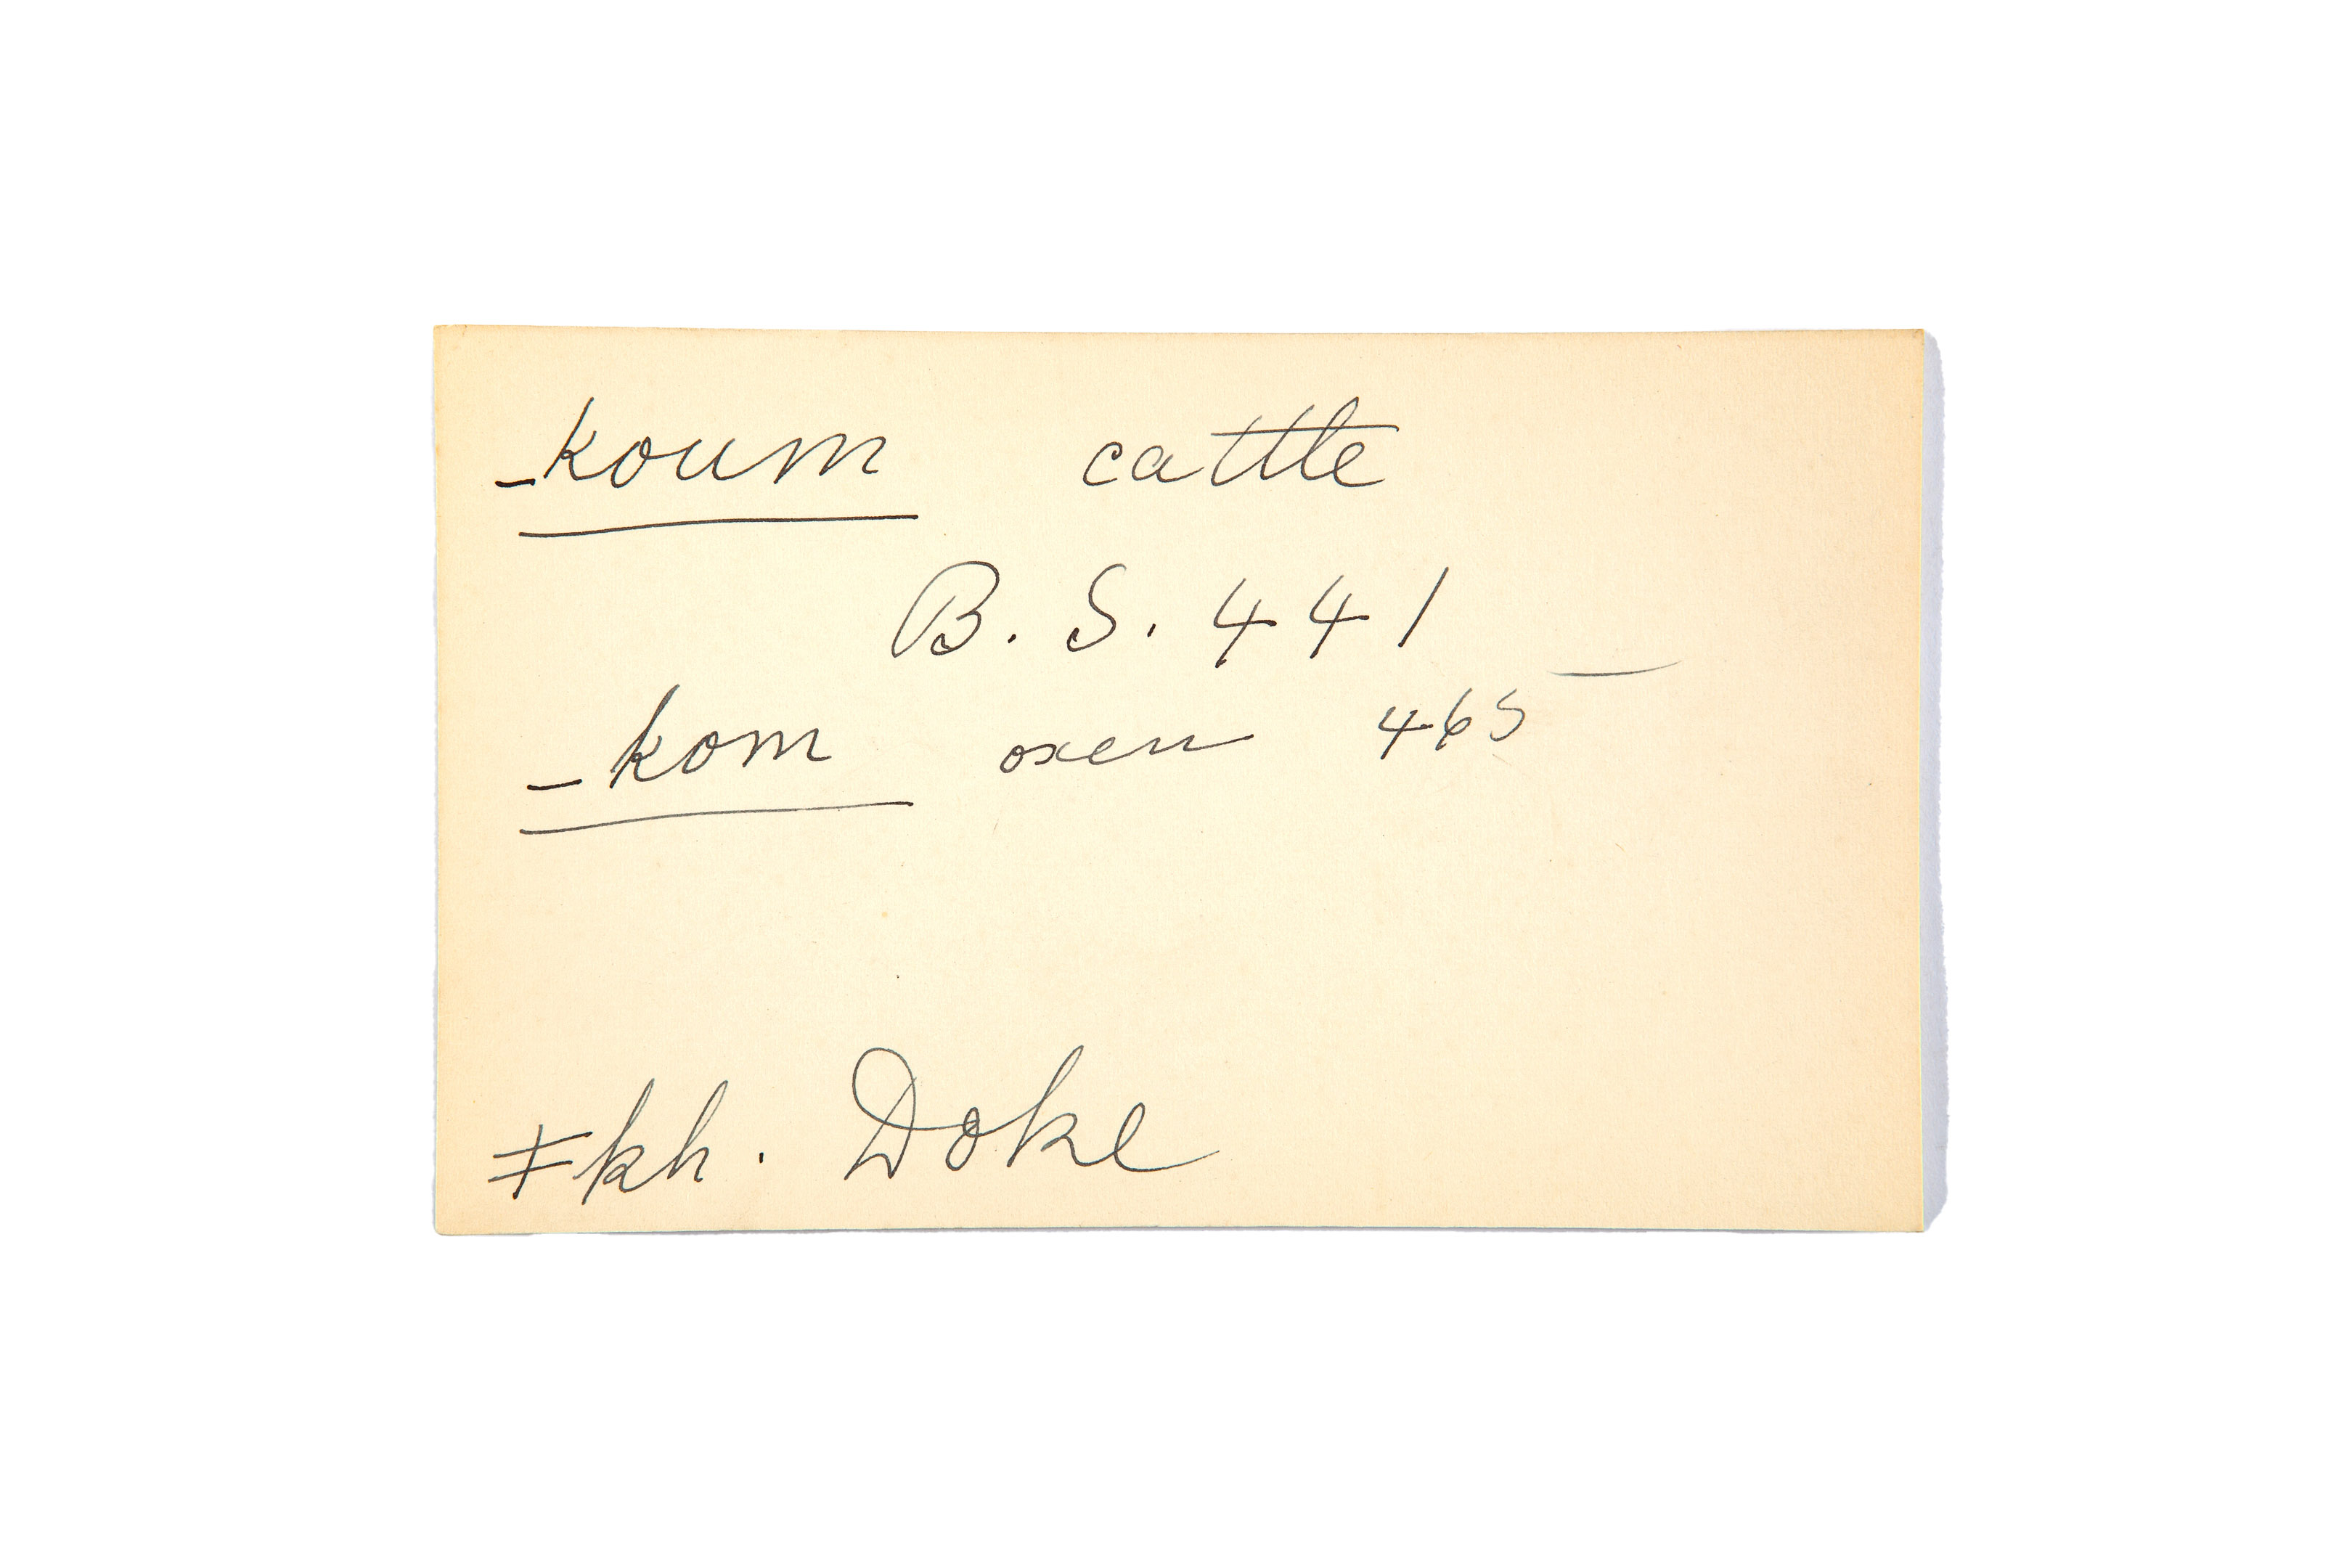 _koum cattle
B. S. 441
_kom oxen 465
ǂkh. Doke